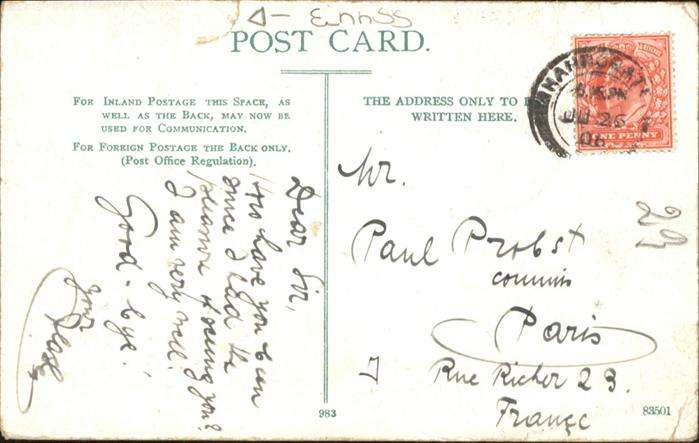 POST CARD.
FOR INLAND POSTAGE THIS SPACE, AS
WELL AS THE BACK, MAY NOW BE
USED FOR COMMUNICATION.
FOR FOREIGN POSTAGE THE BACK ONLY.
(Post Office Regulation).
THE ADDRESS ONLY TO
WRITTEN HERE.
JU 26
08
ONE PENNY
Dear Sir,
How have you been
since I had the
pleasure of seeing you?
I am very well.
Good-bye!
your
Mr.
Paul Probst
commis
Paris
7 Rue Richer 23.
France
29
983
83501